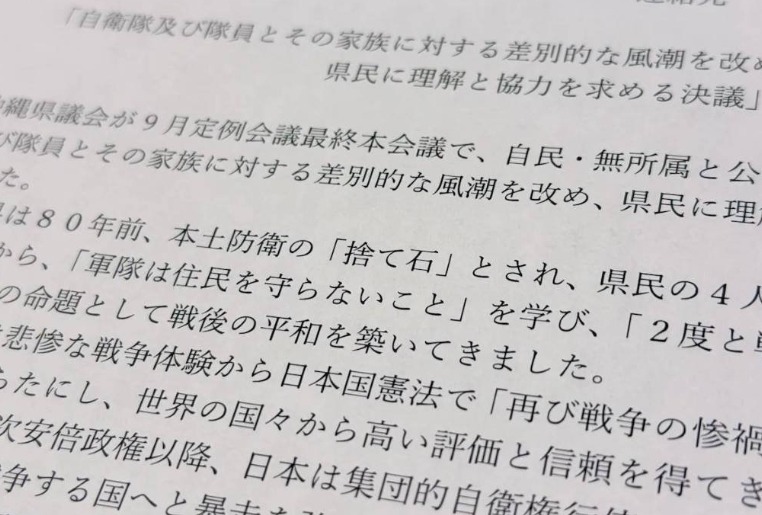 連絡先
「自衛隊及び隊員とその家族に対する差別的な風潮を改め
県民に理解と協力を求める決議」
沖縄県議会が９月定例会議最終本会議で、自民・無所属と公
び隊員とその家族に対する差別的な風潮を改め、県民に理解
た。
は８０年前、本土防衛の「捨て石」とされ、県民の４人
から、「軍隊は住民を守らないこと」を学び、「２度と戦
の命題として戦後の平和を築いてきました。
悲惨な戦争体験から日本国憲法で「再び戦争の惨禍
らたにし、世界の国々から高い評価と信頼を得てき
次安倍政権以降、日本は集団的自衛権行使
争する国へと暴走を